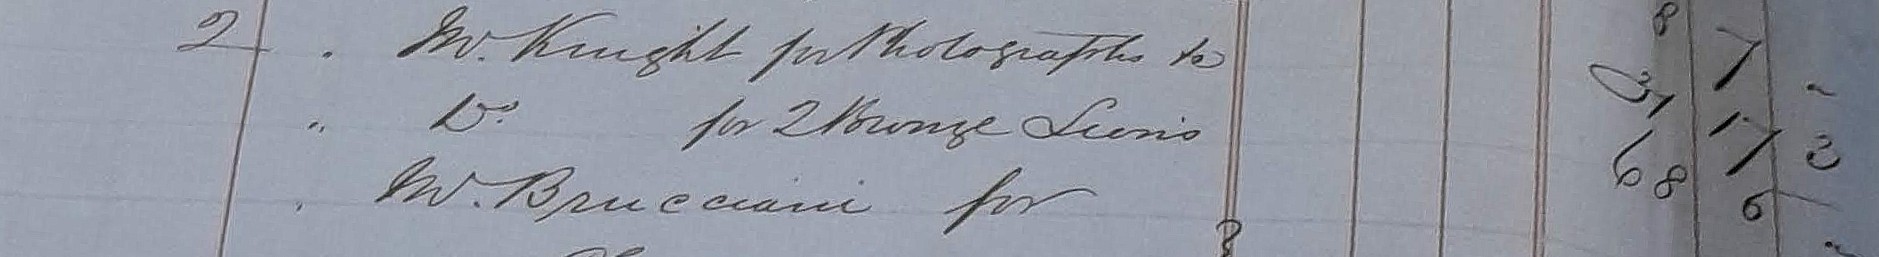 2 . Mr. Knight for Photographs &c 8 7 -
" Do. for 2 Bronze Lions 31 17 3
. Mr. Brucciani for 68 6 -